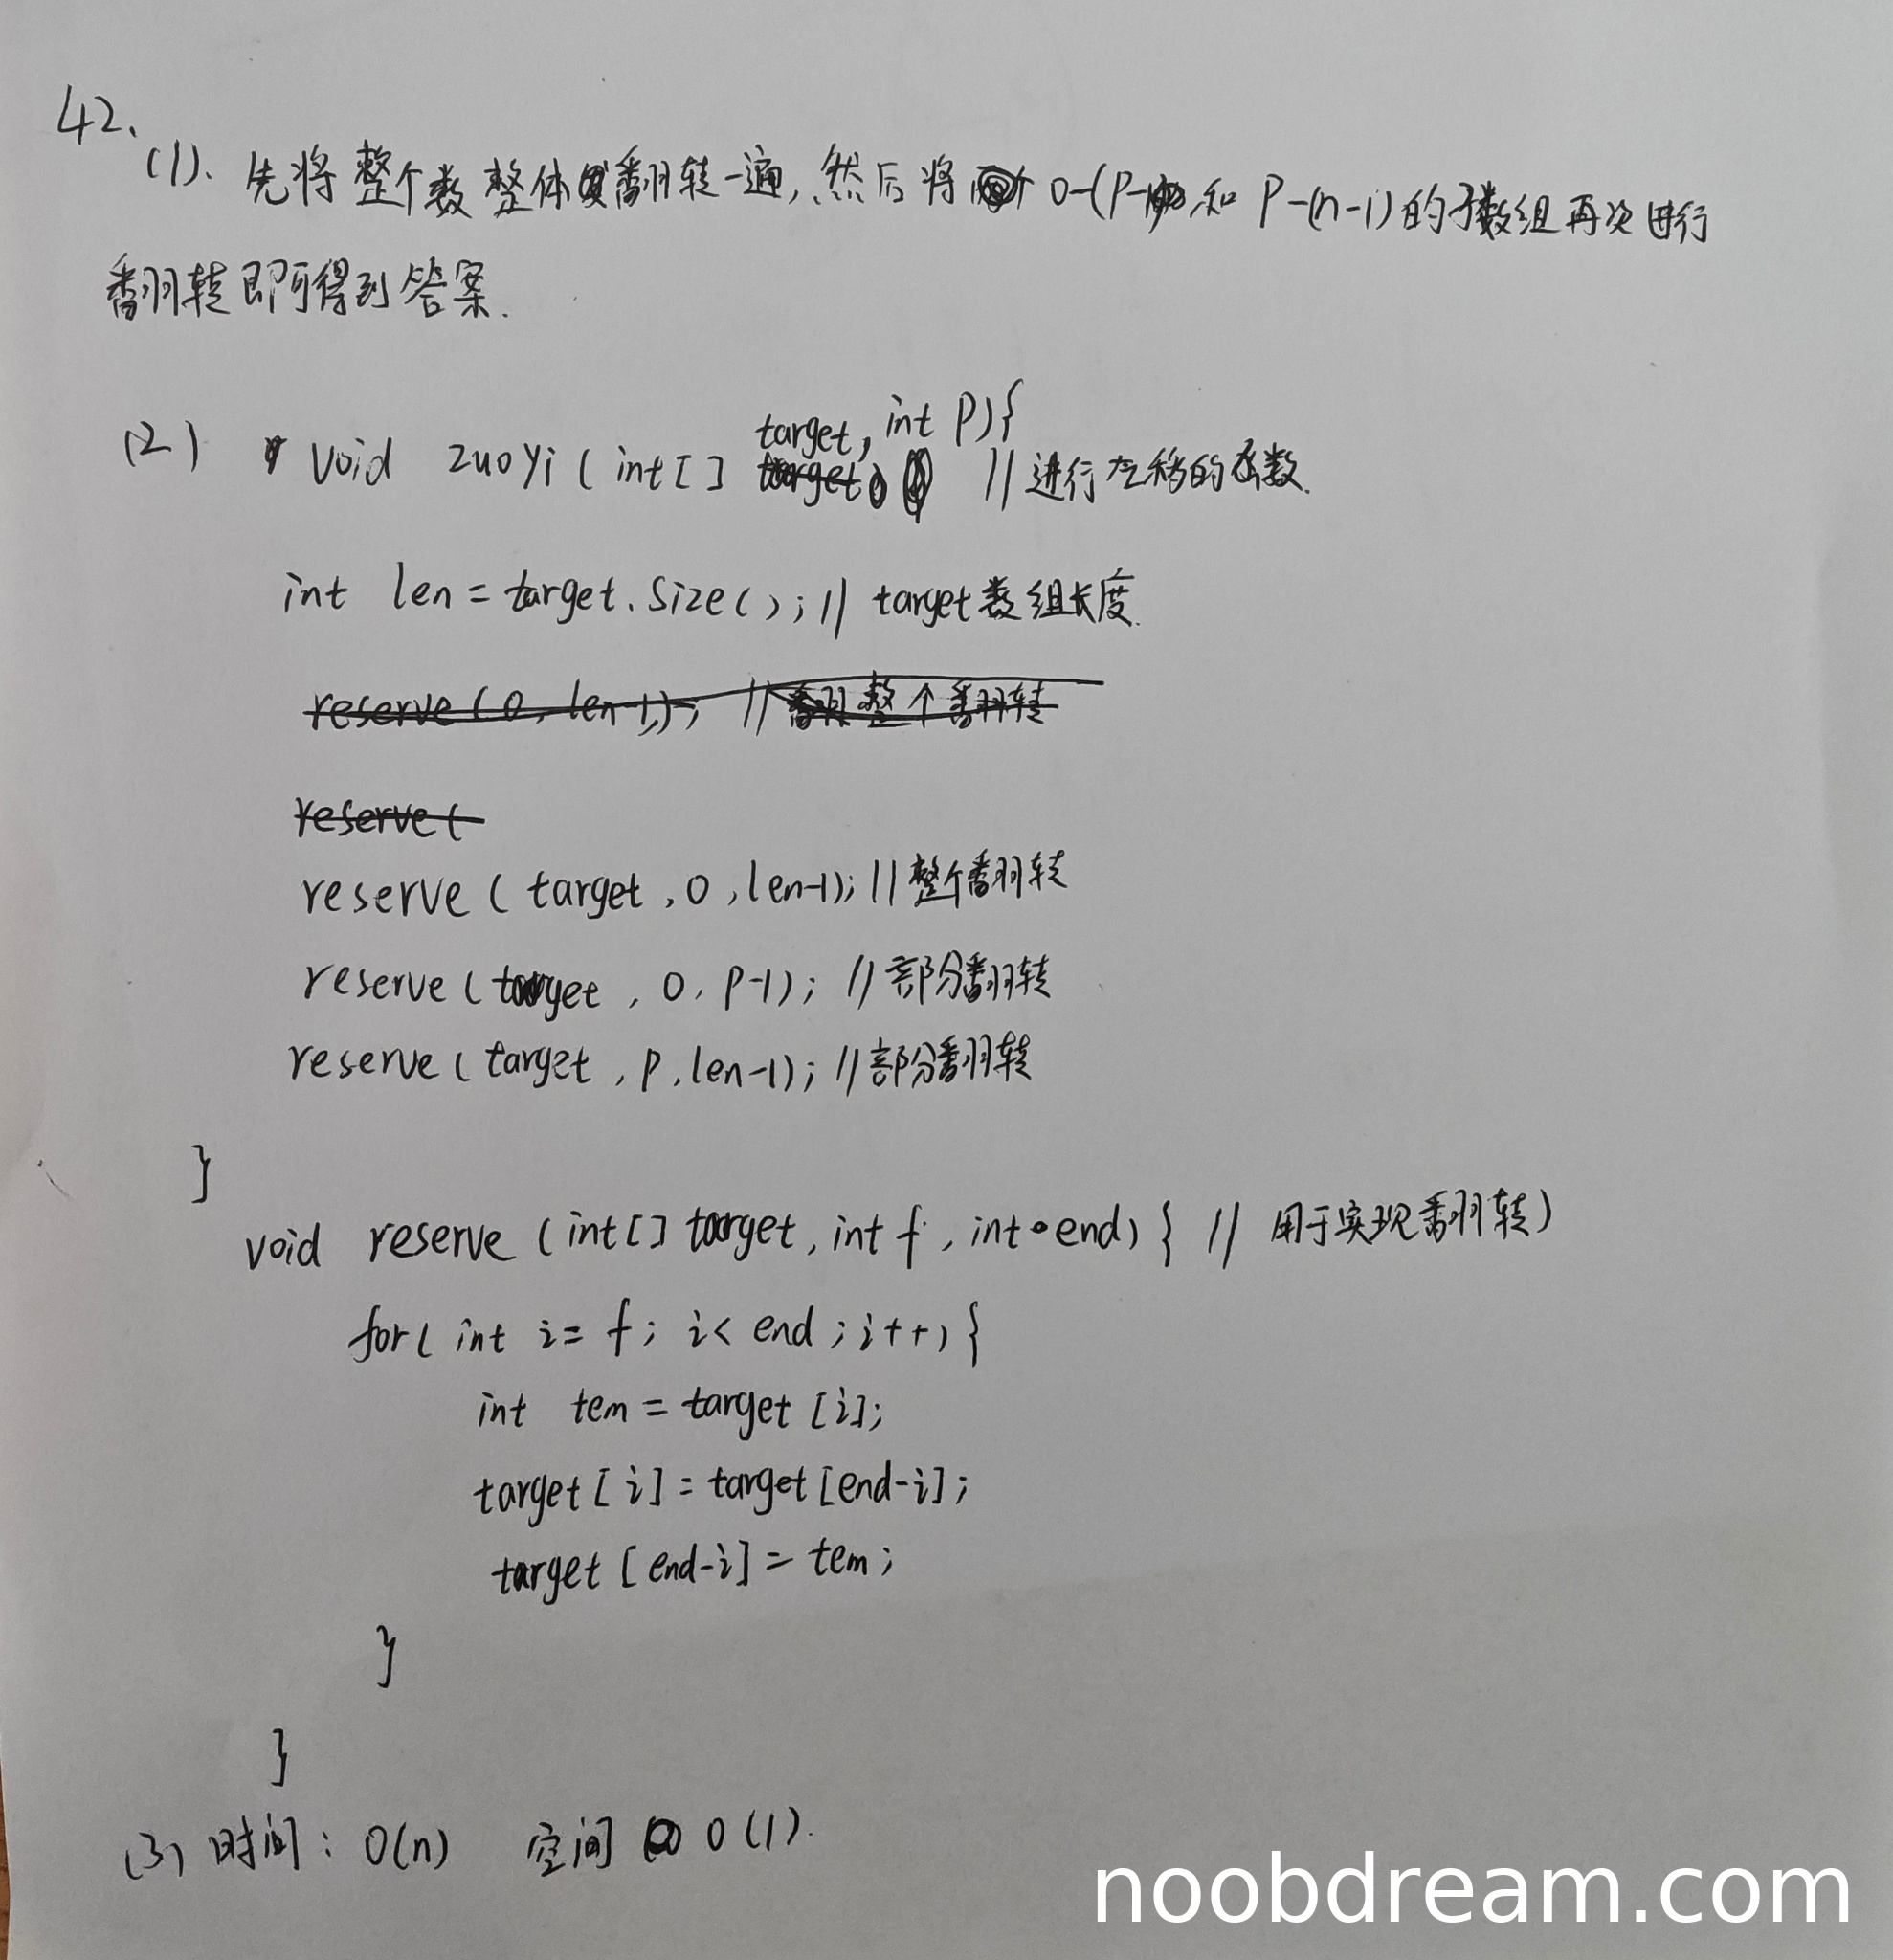 42、
(1). 先将整个数整体翻转一遍,然后将 0-(P-1) 和 P-(n-1) 的子数组再次进行
翻转即可得到答案.
(2) void zuoyi ( int [ ] target, int P) { // 进行左移的函数.
int len = target. Size ( ) ; // target 数组长度.
reserve ( 0, len-1, ) ; // 翻 整个翻转
reserve (
reserve ( target , 0 , len-1); // 整个翻转
reserve ( target , 0, P-1) ; // 部分翻转
reserve ( target , P, len-1) ; // 部分翻转
}
void reserve ( int [ ] target, int f , int end) { // 用于实现翻转)
for ( int i = f ; i < end ; i++) {
int tem = target [i];
target [ i ] = target [end-i] ;
target [ end-i] = tem ;
}
}
(3) 时间 : O(n) 空间 O (1).
noobdream.com